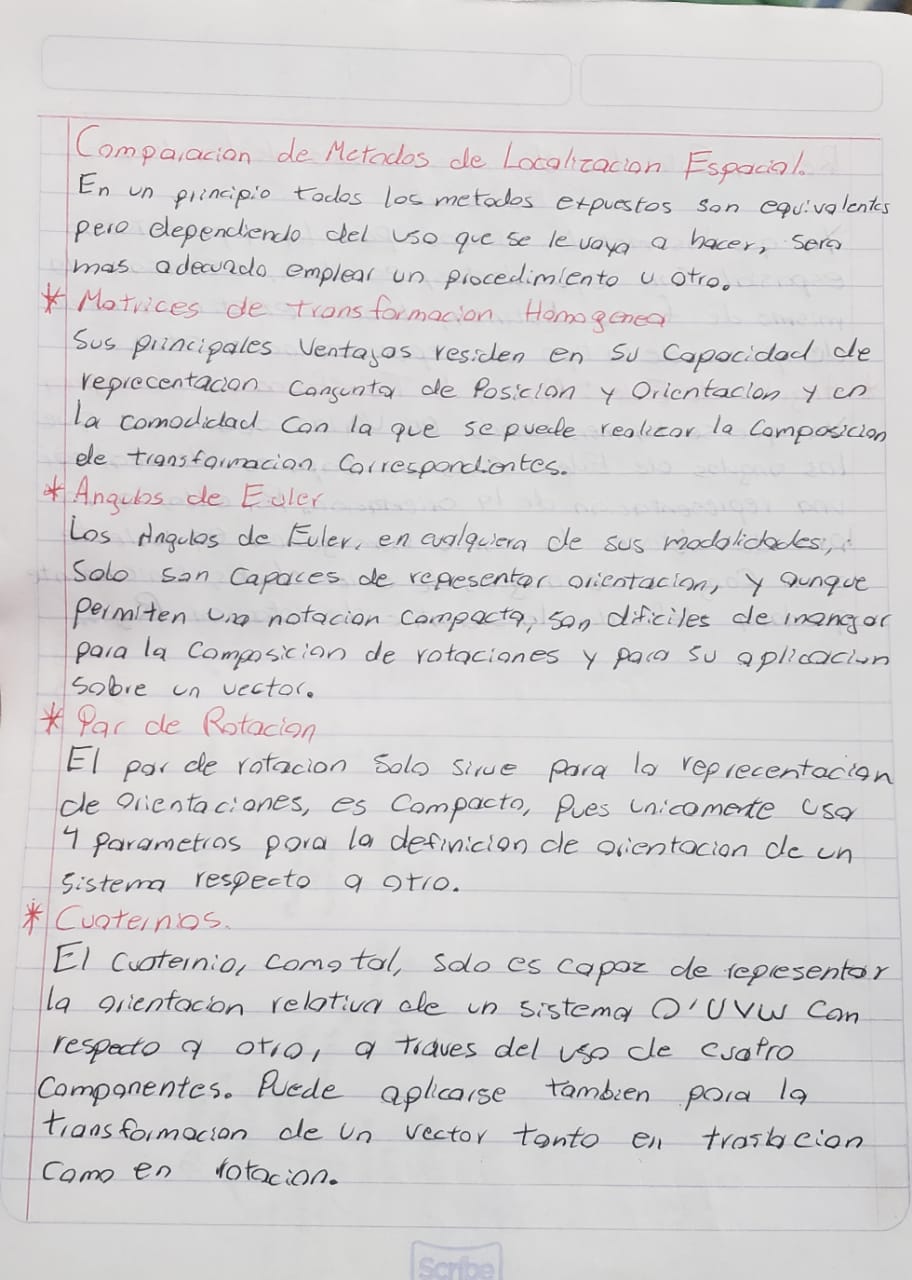 Comparacion de Metodos de Localizacion Espacial.
En un principio todos los metodos expuestos son equivalentes
pero dependiendo del uso que se le vaya a hacer, sera
mas adecuado emplear un procedimiento u otro.
* Matrices de transformacion Homogenea
Sus principales ventajas residen en su capacidad de
reprecentacion conjunta de Posicion y Orientacion y en
la comodidad con la que se puede realizar la composicion
de transformacion correspondientes.
* Angulos de Euler
Los Angulos de Euler, en cualquiera de sus modalidades,
Solo son capaces de representar orientacion, y aunque
permiten una notacion compacta, son dificiles de manejar
para la composicion de rotaciones y para su aplicacion
sobre un vector.
* Par de Rotacion
El par de rotacion solo sirve para la reprecentacion
de orientaciones, es compacto, pues unicamente usa
4 parametros para la definicion de orientacion de un
sistema respecto a otro.
* Cuaternios.
El cuaternio, como tal, solo es capaz de representar
la orientacion relativa de un sistema O'UVW con
respecto a otro, a traves del uso de cuatro
componentes. Puede aplicarse tambien para la
transformacion de un vector tanto en traslacion
como en rotacion.
Scribe